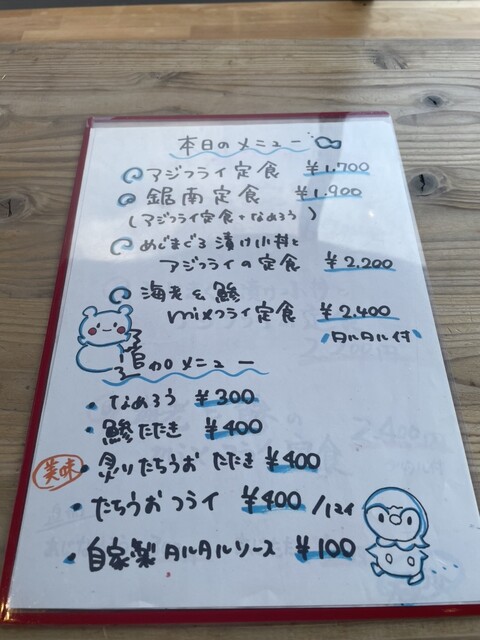 本日のメニュー
アジフライ定食 ¥1,700
鋸南定食 ¥1,900
(アジフライ定食+なめろう)
めじまぐろ漬け小丼と
アジフライの定食 ¥2,200
海老&鯵
mixフライ定食 ¥2,400
タルタル付
追加のメニュー
・なめろう ¥300
・鯵たたき ¥400
美味
・炙りたちうおたたき ¥400
・たちうおフライ ¥400/1コイ
・自家製タルタルソース ¥100